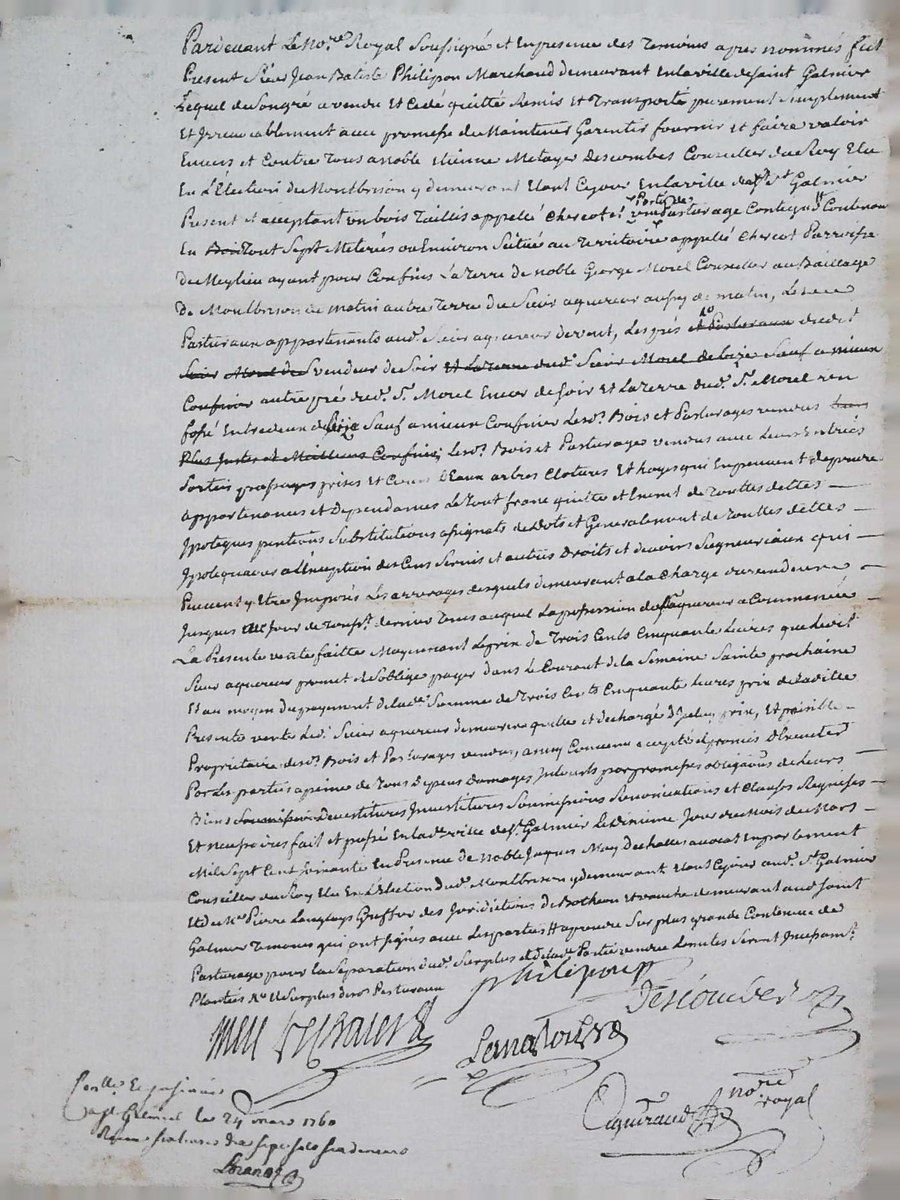 Pardevant Le No.re Royal Soussigné et En presence des Temoins apres nommés fut
Present Sieur Jean Batiste Philipon Marchand demeurant En la ville de Saint Galmier
Lequel de Son gré a vendu Et Cedé quitté Remis Et Transporté purement Simplement
Et Irrevocablement avec promesse de Maintenir Garentir fournir et faire valoir
Envers et Contre Tous a Noble Etienne Metayer Descombes Conseiller du Roy Elu
En L'Election de Montbrison y demeurant Etant Ce jour En la ville de St Galmier
Present et acceptant un bois Taillis appellé Chercot et Partie de Pasturage Contenant
En Tout Sept Meterées ou Environ Scitué au Territoire appellé Chercot Parroisse
de Meylieu ayant pour Confins La Terre de noble George Morel Conseiller au Bailliage
De Montbrison de matin autre Terre du Sieur aquereur aussy de matin,
Pasturaux appartenants aud. Sieur aquereur de vent, Les prés et Pasturaux dudit
Sieur Morel de vendeur de Soir Et La Terre dud. Sieur Morel de bize Sauf a mieux
Confiner autre pré dud. Sr. Morel Encor de Soir et La Terre dud. Sr. Morel
fossé Entredeux de bize Sauf a mieux Confiner Lesd. Bois et Pasturages vendus
Plus Justes et Meilleurs Confins; Lesd. Bois et Pasturages vendus avec Leurs Entrées
Sorties passages prises et Cours d'Eaux arbres Clotures Et hayes qui En peuvent dependre
appartenances et Dependances Le Tout franc quitte et Exempt de Touttes dettes
Ipoteques pentions Substitutions assignats de Dots et Generalement de Touttes dettes
Ipotequaires a L'Exception des Cens Servis et autres Droits et devoirs Seigneuriaux qui
Peuvent y Etre Imposés Les arrerages desquels demeurant a la Charge du vendeur
Jusques au Jour de dernier Tems auquel La possession de aquereur a Commencé
La Presente vente faitte Moyennant Le prix de Trois Cents Cinquante Livres que Ledit
Sieur aquereur promet et s'oblige payer dans le Courant de la Semaine Sainte prochaine
Et au moyen du payement de la de Somme de Trois Cents Cinquante livres prix de la ditte
Presente vente Led. Sieur aquereur demeurera quitte et dechargé prix, Et paisible
Propriétaire desd. Bois et Pasturages vendus, ainsy Convenu accepté et promis d'Executer
Par Les parties a peine de Tous Depens Domages Interets par promesses obligations de Leurs
Biens Soumissions Devestitures Investitures Soumissions Renonciations et Clauses Requises
Et necessaires fait et passé En lad. ville de St. Galmier Le Jour du Mois de Mars
Mil Sept Cent Soixante En Presence de Noble Jaques May Dechalles avocat En parlement
Conseiller du Roy Elu En L'Election dud. Montbrison y demeurant Etant Ce jour aud. St Galmier
Et de Me. Pierre Greffier des Juridictions de Botheon et demeurant aud. Saint
Galmier Temoins qui ont signés avec Les parties Sur plus grande Contenue de
Pasturage pour La Separation dud. Surplus et de lad. Partie vendue Limites Seront Incessamt.
Plantés Le Surplus desd. Pasturaux
Philipon
Descombes
Eyquiraud no.re royal
Con.llé Et
a St Galmier le 24 mars 1760